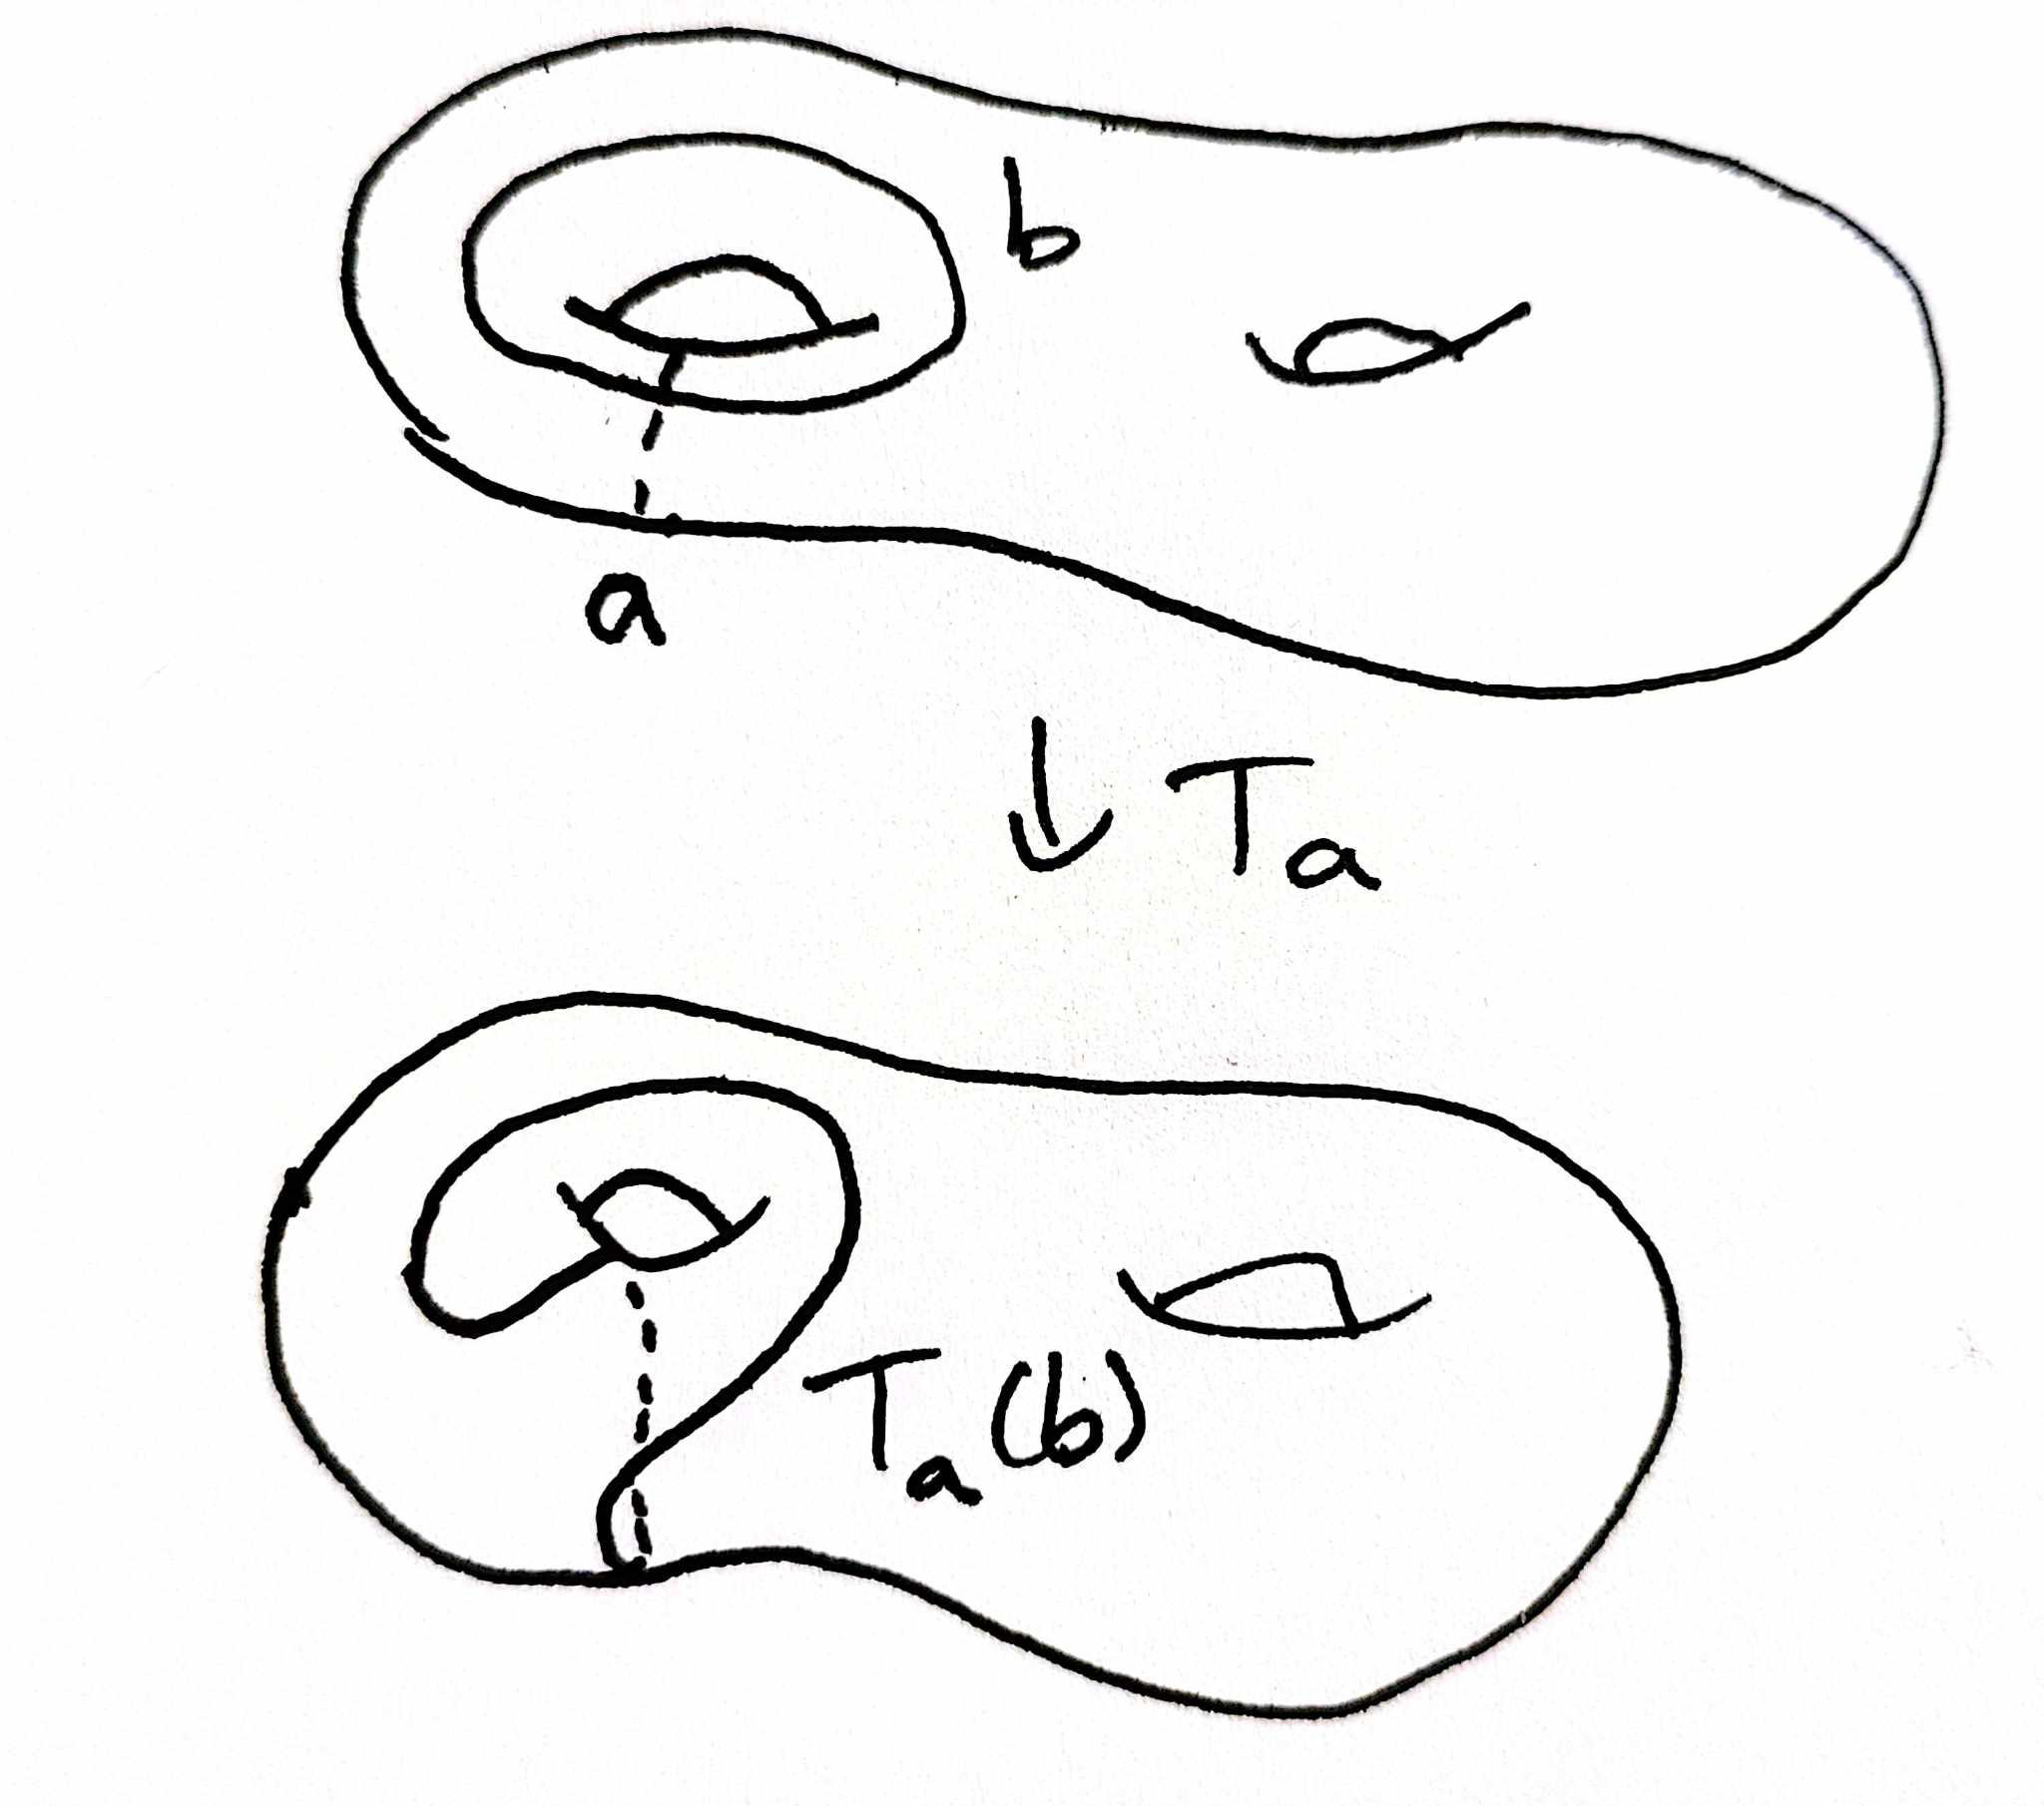 b
a
Tₐ
Tₐ(b)